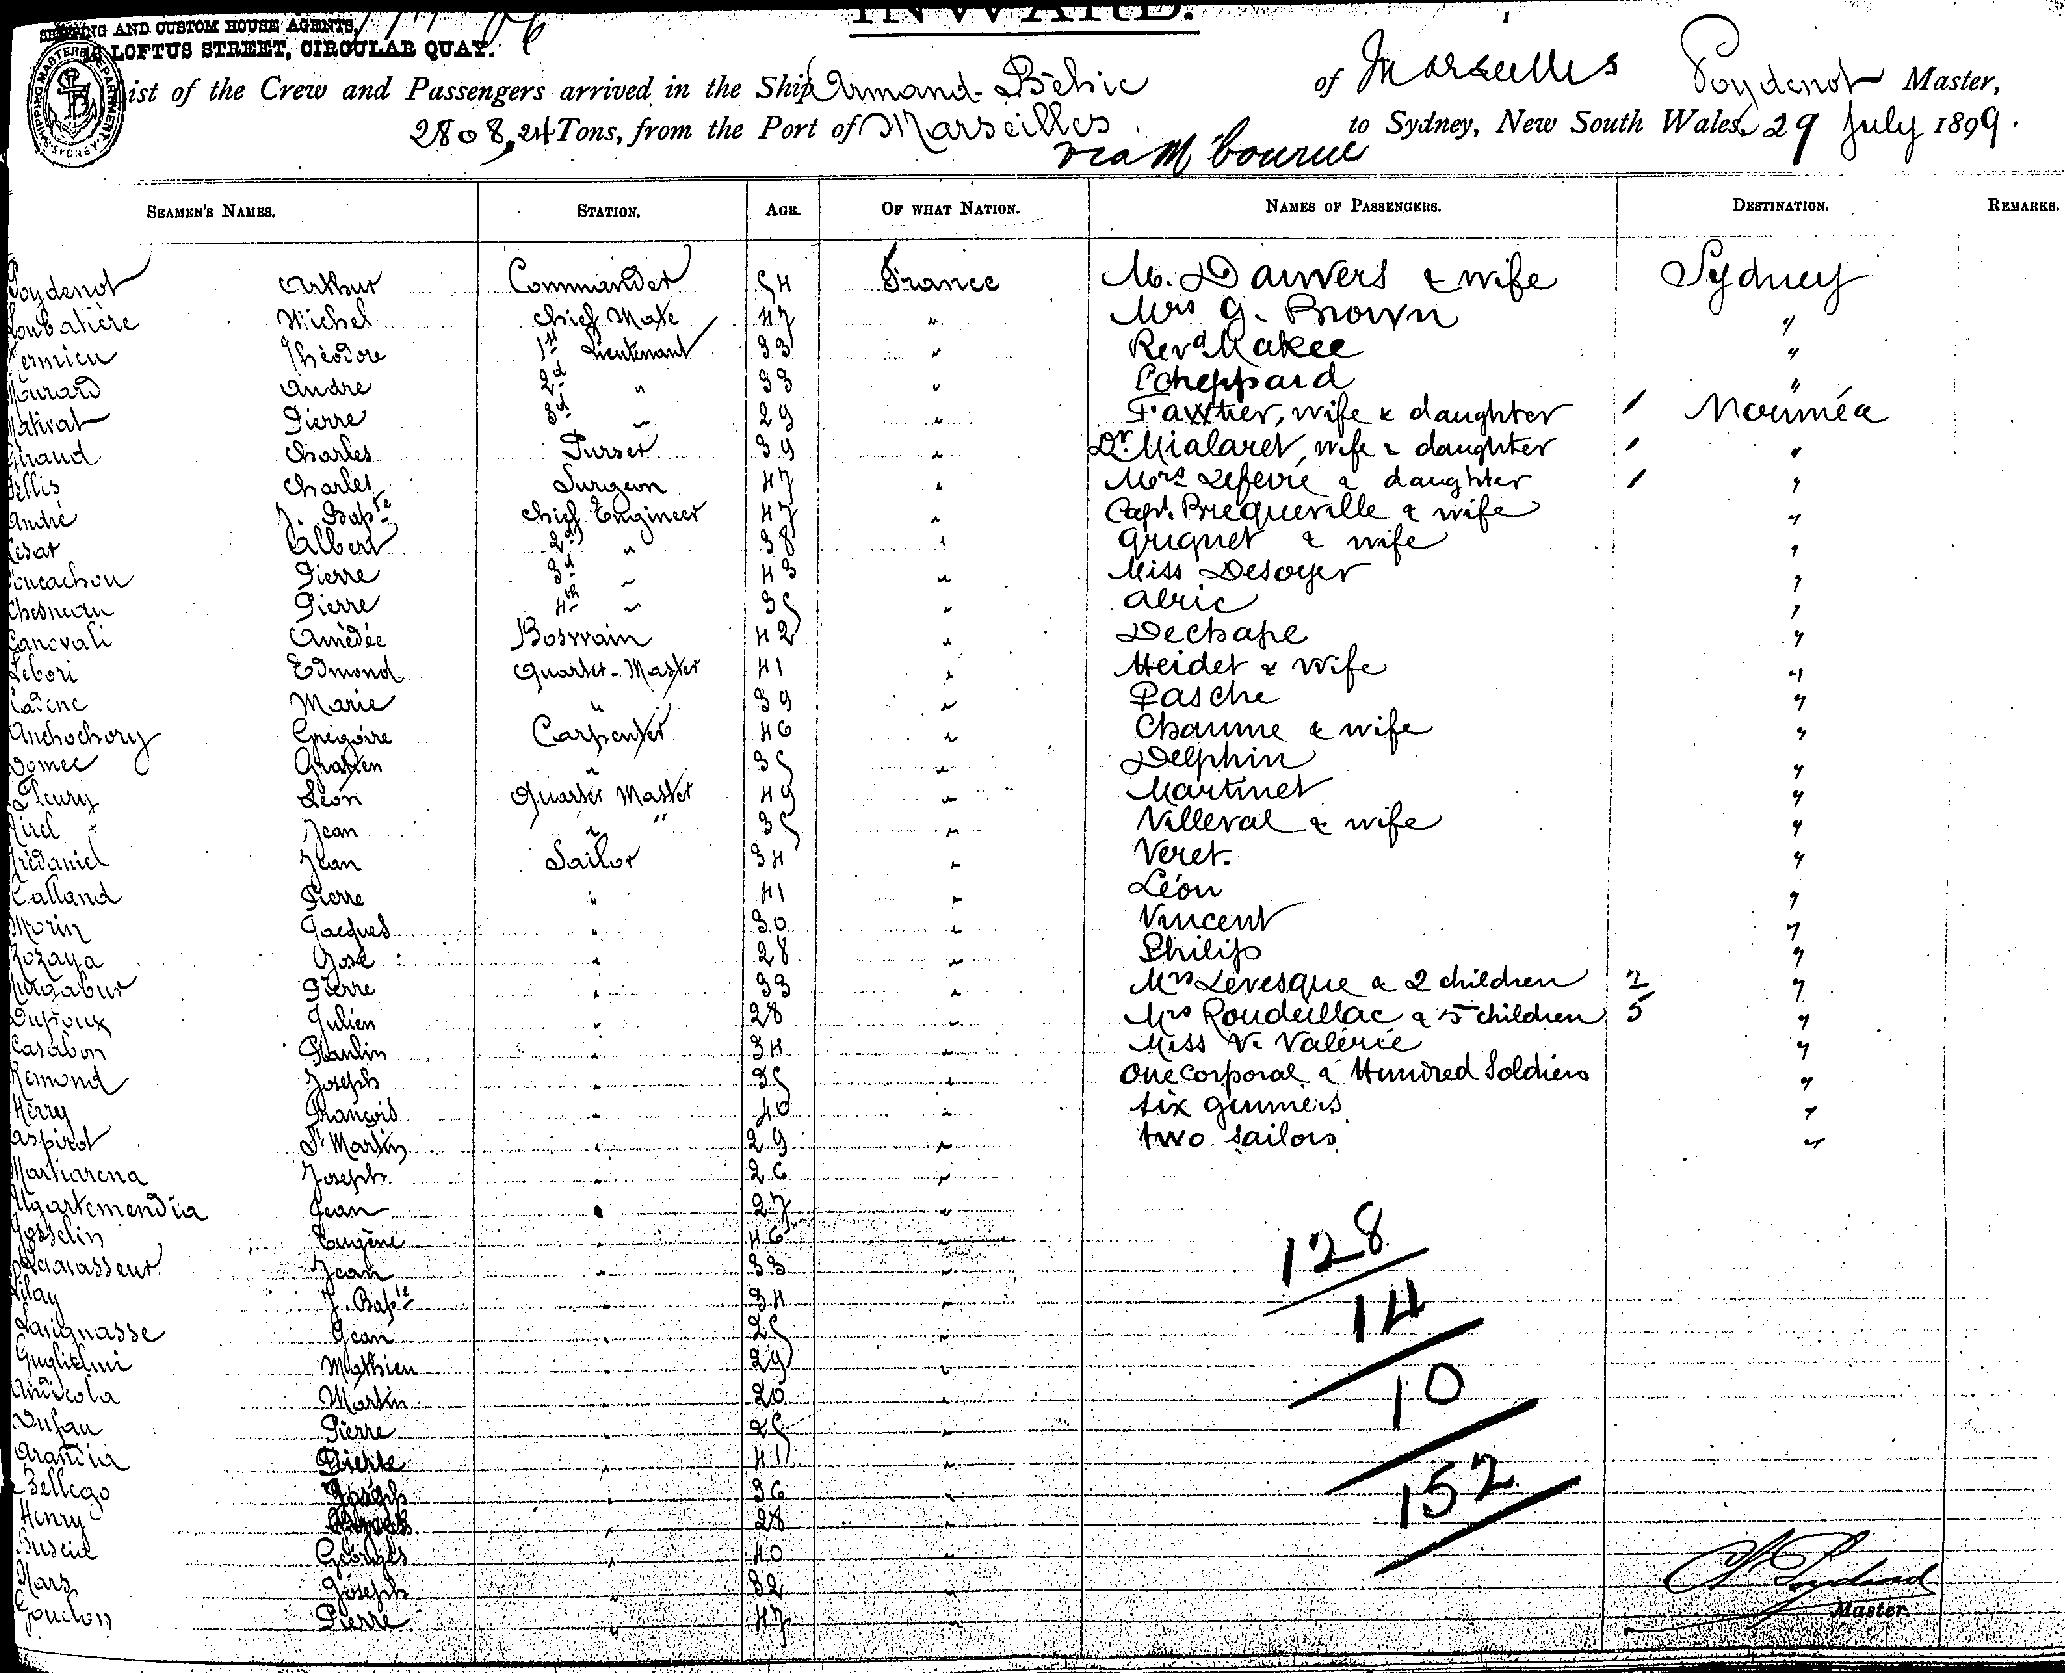 INWARD.
SHIPPING AND CUSTOM HOUSE AGENTS,
LOFTUS STREET, CIRCULAR QUAY.
ist of the Crew and Passengers arrived in the Ship Armand-Béhic of Marseilles Poydenot Master,
2808,24 Tons, from the Port of Marseilles to Sydney, New South Wales, 29 July 1899.
via M'bourne
SEAMEN'S NAMES. STATION. AGE. OF WHAT NATION. NAMES OF PASSENGERS. DESTINATION. REMARKS.
Poydenot Arthur Commander 54 France M. Danvers & wife Sydney
Loubatière Michel Chief Mate 47 " Mrs G. Brown "
Théodore 1st Lieutenant 33 " Revd Makee "
André 2d " 33 " Scheppard "
Pierre 3d " 29 " Fawtier, wife & daughter / Nouméa
Charles Purser 39 " Dr. Mialaret, wife & daughter / "
Charles Surgeon 47 " Mrs Lefevre & daughter / "
André J. Bapte Chief Engineer 47 " Capt. Brequeville & wife "
Cesar Albert 2d " 38 " Griquet & wife "
Pierre 3d " 43 " Miss Desoyer "
Chesneau Pierre 4th " 35 " Alric "
Canovali Amédée Boswain 42 " Dechape "
Lebori Edmond Quarter-Master 41 " Heidet & wife "
Cadene Marie " 39 " Pasche "
Anchochory Grégoire Carpenter 46 " Chaume & wife "
Domec Gratien " 35 " Delphin "
Fleury Léon Quarter Master 49 " Martinet "
Jean " " 35 " Villeval & wife "
Trédaniel Jean Sailor 34 " Veret. "
Calland Pierre " 41 " Léon "
Morin Jacques " 30 " Vincent "
Zozaya José " 28 " Philip "
Pierre " 33 " Mrs Levesque & 2 children 2 "
Dupoux Julien " 28 " Mrs Roudeillac & 5 children 5 "
Casabon Paulin " 34 " Miss V. Valérie "
Remond Joseph " 35 " One corporal & Hundred Soldiers "
Herry François " 40 " six gunners "
aspirot St Martin " 29 " two sailors "
Martiarena Joseph " 26 "
Ugartemendia Jean " 27 "
Gosselin Eugène " 46 "
Jean " 33 "
J. Bapte " 34 "
Lavignasse Jean " 25 "
Guglielmi Mathieu " 29 "
Martin " 20 "
Dufau Pierre " 25 "
Arandia Pierre " 41 "
Bellego Joseph " 36 "
Henry 28 "
Georges " 40 "
Joseph " 32 "
Goudon Pierre " 47 "
128
14
10
152
Master